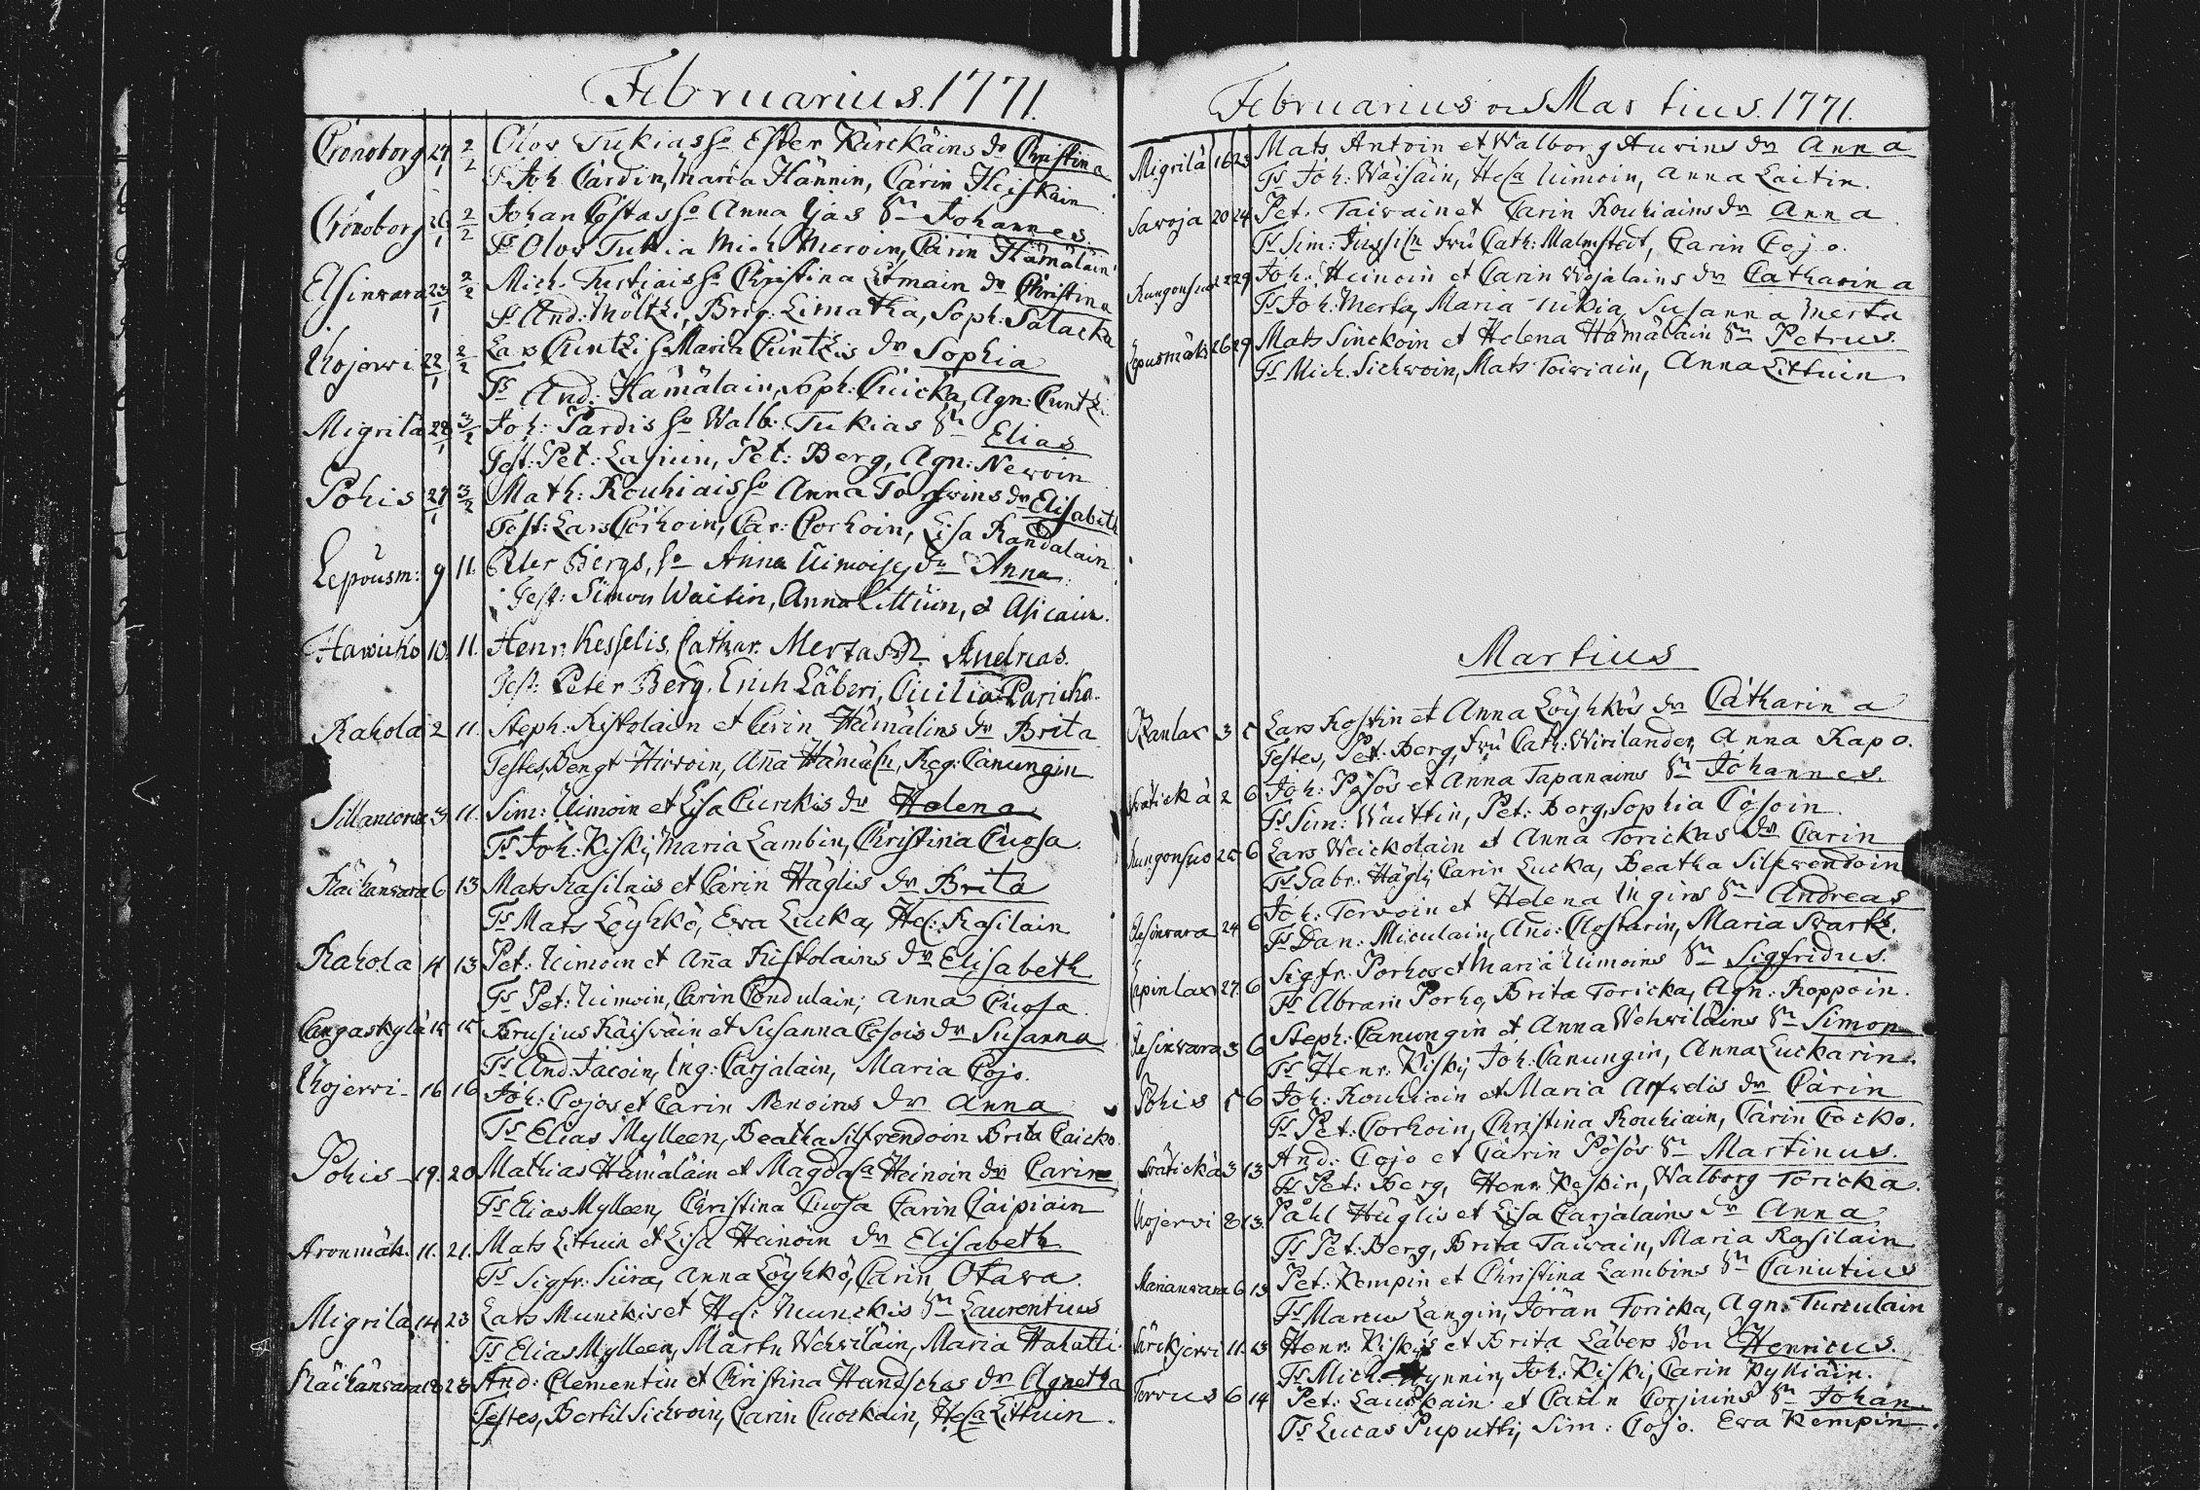 Februarius. 1771.
Cronoborg 27/1 2/2 Olov Tukias so Ester Kärckäins dr Christina
Ts Joh. Pardin, Maria Hännin, Carin Heiskain
Cronoborg 26/1 2/2 Johan Costas so Anna Ijas Sn Johannes
Ts Olov Tukia Mich Meroin, Carin Hämäläin
Elsinwara 23/1 2/2 Mich. Turtiais so Christina Litmain dr Christina
Ts And: Möltzi, Brig: Limatka, Soph: Salacka
Ihojerwi 22/1 2/2 Lars Cuntzis Maria Cuntzis dr Sophia
Ts And: Hämäläin, Soph: Cuicka, Agn: Cuntzi
Migrila 28/1 3/2 Joh: Pardis so Walb: Tukias Sn Elias
Test: Pet: Lasuin, Pet: Berg, Agn: Newoin
Pohis 27/1 3/2 Math: Rouhiais so Anna Torswins dr Elisabeth
Test: Lars Corhoin, Car: Corhoin, Lisa Randalain
Lepousm: 9 11. Peter Bergs, so Anna Uimoise dr Anna.
Test: Simon Waitin, Anna Littuin, et Asicain.
Hawuko 10. 11. Henr: Kesselis, Cathar. Mertas Andreas.
Test: Peter Berg, Erich Läberi, Cicilia Paricka.
Rahola 2 11. Steph: Ristolain et Carin Hämälins dr Brita
Testes, Bengt Hirvoin, Anna Hämäln, Reg: Canungin
3 11. Sim: Uimoin et Lisa Curckis dr Helena
Ts Joh: Kiski, Maria Lambin, Christina Cuosa.
Räihänwara 6 13 Mats Rasilais et Carin Häglis dr Brita
Ts Mats Löyhkö, Ewa Lucka, Hel: Rasilain
Rahola 4 13 Pet: Uimoin et Anna Ristolains dr Elisabeth
Ts Pet: Uimoin, Carin Condulain, Anna Cuosa.
Cangaskylä 15 15 Brusius Räiswäin et Susanna Cosois dr Susanna
Ts And: Jacoin, Ing: Carjalain, Maria Cojo.
Ihojerwi 16 16 Joh: Cojos et Carin Nenoins dr Anna
Ts Elias Mylleen, Beatha Silfwendoin Brita Caicko.
Pohis 19. 20 Mathias Hämäläin et Magdala Heinoin dr Carin
Ts Elias Mylleen, Christina Cuosa Carin Caipiain
Aronmäk. 11. 21. Mats Littuin et Lisa Heinoin dr Elisabeth
Ts Sigfr: Siira, Anna Löyhkö, Carin Otawa.
Migrilä 14 23 Lars Munckis et Hel: Munckis Sn Laurentius
Ts Elias Mylleen, Martn Wehwiläin, Maria Hakulli
Räihänwara And: Clementin et Christina Handschas dr Agnetha
Testes, Bertil Sichwoin, Carin Cuockain, Hela Littuin.
Februarius o Martius. 1771.
Migrilä 16 23 Mats Antoin et Walborg Auwins dr Anna
Ts Joh: Wäisäin, Hela Uimoin, Anna Laitin.
Sawoja 20 24 Pet. Taiwain et Carin Rouhiains dr Anna
Ts Sim: Jussiln Fru Cath: Malmstedt, Carin Cojo.
Joh: Heinoin et Carin Wojalains dr Catharina
Ts Joh: Merta, Maria Tukia, Susanna Merta
Lepusmäki 26 29 Mats Sinckoin et Helena Hämäläin Sn Petrus.
Ts Mich. Sichwoin, Mats Toiwiain, Anna Littuin.
Martius
3 5 Lars Rostin et Anna Löyhkös dr Catharina
Testes, Pet: Berg, Fru Cath: Wirilander, Anna Rapo.
2 6 Joh: Pösös et Anna Tapanains Sn Johannes.
Ts Sim: Waittin, Pet: Berg, Sophia Cosoin.
Kungonsuo 25 6 Lars Weickolain et Anna Torickas dr Carin
Ts Gabr: Hägli, Carin Lucka, Beatha Silfwendoin
Elesinwara 24 6 Joh: Terwoin et Helena Ingins Sn Andreas
Ts Dan: Miculain, And: Clostarin, Maria Swartz.
Lapinlax 27. 6 Sigfr: Porhos et Maria Uimoins Sn Sigfridus.
Ts Abram Porho, Brita Toricka, Agn: Koppoin.
Elesinwara 3 6 Steph: Canungin et Anna Wehwiläins Sn Simon
Ts Henr: Kiski, Joh: Canungin, Anna Luckarin.
Pohis 5 6 Joh: Rouhiain et Maria Arfwelis dr Carin
Ts Pet: Corhoin, Christina Rouhiain, Carin Cocko.
3 13 And: Cojo et Carin Pösös Sn Martinus.
Ts Pet: Berg, Henr Keskin, Walborg Toricka.
Ihojerwi 8 13. Påhl Häglis et Lisa Carjalains dr Anna
Ts Pet: Berg, Brita Taiwain, Maria Rasilain
6 13 Pet: Kempin et Christina Lambins Sn Canutius
Ts Marcus Langin, Jöran Toricka, Agn: Turculain
Särkjerwi 11. 13 Henr. Kiskis et Brita Läbers Son Henricus.
Ts Mich: Hynnin, Joh: Kiski, Carin Kykiäin.
Terwus 6 14 Pet: Lauckain et Carin Corjuins Sn Johan.
Ts Lucas Puputti, Sim: Cojo. Ewa Kempin.